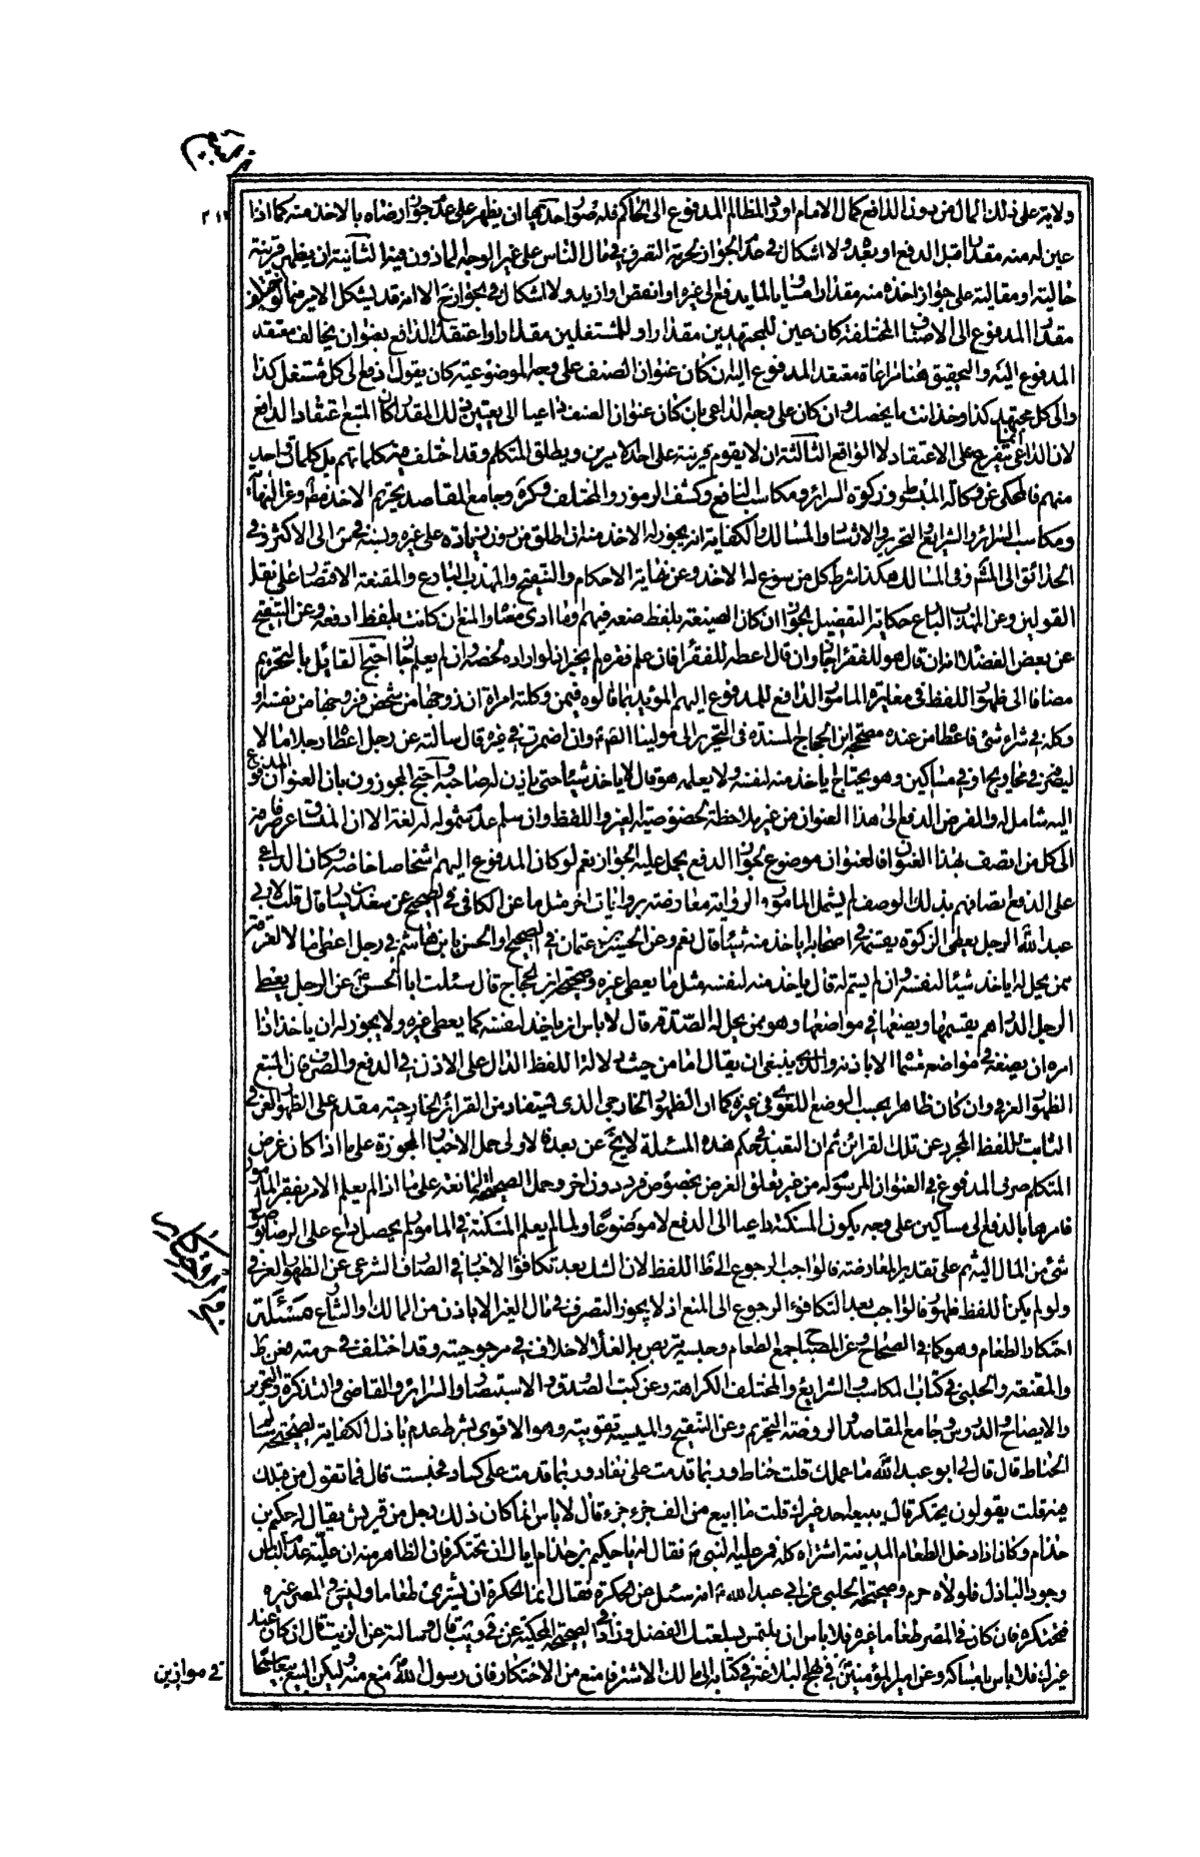 ٢١٢
ولاية على ذلك المال من دون الدافع كمال الامام او رد المظالم المدفوع الى الحاكم فله صور احديها ان يظهر على عدم جواز رضاه بالاخذ منه كما اذا
عين له منه مقدارا قبل الدفع او بعده ولا اشكال في عدم الجواز لحرمة التصرف في مال الناس على غير الوجه الماذون فيه الثانية ان يظهر قرينة
حالية او مقالية على جواز اخذه منه مقدارا مساويا لما يدفع الى غيره او انقص او ازيد ولا اشكال في الجواز ح الا انه قد يشكل الامر فيما لو اختلف
مقدار المدفوع الى الاصناف المختلفة كان عين للمجتهدين مقدارا وللمشتغلين مقدارا واعتقد الدافع بعنوان يخالف معتقد
المدفوع اليه والتحقيق هنا مراعاة معتقد المدفوع اليه ان كان عنوان الصنف على وجه الموضوعية كان يقول ادفع الى كل مشتغل كذا
والى كل مجتهد كذا وخذ انت ما يخصك وان كان على وجه الداعي بان كان عنوان الصنف داعيا الى تعيين ذلك المقدار كان المتبع اعتقاد الدافع
لان الداعي انما يتفرع على الاعتقاد لا الواقع الثالثة ان لا يقوم قرينة على احد الامرين ويطلق المتكلم وقد اختلف فيه كلماتهم بل كلمات واحد
منهم فالمحكي عن وكالة المبسوط وزكوة السرائر ومكاسب النافع وكشف الرموز والمختلف والتذكرة وجامع المقاصد تحريم الاخذ مطلقا وعن النهاية
ومكاسب السرائر والشرايع والتحرير والارشاد والمسالك والكفاية انه يجوز له الاخذ منه ان اطلق من دون زيادة على غيره ونسبه في الدروس الى الاكثر وفي
الحدائق الى المشهور وفي المسالك هكذا شرط كل من سوغ له الاخذ وعن نهاية الاحكام والتنقيح والمهذب البارع والمقتصر الاقتصار على نقل
القولين وعن المهذب البارع حكاية التفصيل بالجواز ان كان الصيغة بلفظ ضعه فيهم وما ادى معناه والمنع ان كانت بلفظ ادفعه وعن التنقيح
عن بعض الفضلاء انه ان قال هو للفقراء جاز وان قال اعطه للفقراء فان علم فقره لم يجز اذ لو اراده لخصه وان لم يعلم جاز احتج القائل بالتحريم
مضافا الى ظهور اللفظ في مغايرة المامور الدافع للمدفوع اليهم المؤيد بما قالوه فيمن وكلته امراة ان زوجها من شخص فزوجها من نفسه او
وكله في شراء شئ فاعطاه من عنده مصححة ابن الحجاج المسندة في التحرير الى مولينا الصادق وان اضمرت في غيره قال سالته عن رجل اعطاه رجل مالا
ليقسمه في محاويج او في مساكين وهو محتاج اياخذ منه لنفسه ولا يعلمه هو قال لا ياخذ شيئا حتى ياذن له صاحبه واحتج المجوزون بان العنوان المدفوع
اليه شامل له والفرض الدفع الى هذا العنوان من غير ملاحظة لخصوصية الغير واللفظ وان سلم عدم شموله له لغة الا ان المنساق عرفا صرفه
الى كل من اتصف بهذا العنوان فالعنوان موضوع لجواز الدفع يحمل عليه الجواز نعم لو كان المدفوع اليهم اشخاصا خاصة وكان الداعي
على الدفع اتصافهم بذلك الوصف لم يشمل المامور والرواية معارضة بروايات اخر مثل ما عن الكافي في الصحيح عن سعيد بن يسار قال قلت لابي
عبد الله الرجل يعطى الزكوة يقسمها في اصحابه اياخذ منه شيئا قال نعم وعن الحسين بن عثمان في الصحيح او الحسن بابن هاشم في رجل اعطى مالا يفرقه
فيمن يحل له اياخذ شيئا لنفسه وان لم يسم له قال ياخذ منه لنفسه مثل ما يعطى غيره وصحيحة ابن الحجاج قال سئلت ابا الحسن عن الرجل يعطى
الرجل الدراهم يقسمها ويضعها في مواضعها وهو ممن يحل له الصدقة قال لا باس ان ياخذ لنفسه كما يعطى غيره ولا يجوز له ان ياخذ اذا
امره ان يضعه في مواضع مسماة الا باذنه والذي ينبغي ان يقال اما من حيث دلالة اللفظ الدال على الاذن في الدفع والصرف فان المتبع
الظهور العرفي وان كان ظاهرا بحسب الوضع اللغوي في غيره كما ان الظهور الخارجي الذي يستفاد من القرائن الخارجية مقدم على الظهور العرفي
الثابت للفظ المجرد عن تلك القرائن ثم ان التعبد في حكم هذه المسئلة لا يخ عن بعد فالاولى حمل الاخبار المجوزة على ما اذا كان غرض
المتكلم صرف المدفوع في العنوان المرسوم له من غير تعلق الغرض بخصوص فرد دون آخر وحمل الصحيحة المانعة على ما اذا لم يعلم الامر بفقر المامور
فامره بالدفع الى مساكين على وجه يكون المسكنة داعيا الى الدفع لا موضوعا ولما لم يعلم المسكنة في المامور لم يحصل داع على الرضا بوصول
شئ من المال اليه ثم على تقدير المعارضة فالواجب الرجوع الى ظاهر اللفظ لان الشك بعد تكافؤ الاخبار في الصارف الشرعي عن الظهور العرفي
ولو لم يكن للفظ ظهور فالواجب بعد التكافؤ الرجوع الى المنع اذ لا يجوز التصرف في مال الغير الا باذن من المالك والشارع مسئلة
احتكار الطعام وهو كما في الصحاح وعن المصباح جمع الطعام وحبسه يتربص به الغلاء لا خلاف في مرجوحيته وقد اختلف في حرمته فعن ط
والمقنعة والحلبي في كتاب المكاسب والشرايع والمختلف الكراهة وعن كتب الصدوق والاستبصار والسرائر والقاضي والتذكرة والتحرير
والايضاح والدروس وجامع المقاصد والروضة التحريم وعن التنقيح والميسية تقويته وهو الاقوى بشرط عدم باذل الكفاية لصحيحة سالم
الحناط قال قال لي ابو عبد الله ما عملك قلت حناط وربما قدمت على نفاد وربما قدمت على كساد فحبست قال فما تقول من قبلك
فيه قلت يقولون يحتكر قال يبيعه احد غيرك قلت ما ابيع من الف جزء جزء قال لا باس انما كان ذلك رجل من قريش يقال له حكيم بن
حزام وكان اذا دخل الطعام المدينة اشتراه كله فمر عليه النبي فقال له يا حكيم بن حزام اياك ان تحتكر فان الظاهر منه ان علة عدم الباس
وجود الباذل فلولاه حرم وصحيحة الحلبي عن ابي عبد الله انه سئل عن الحكرة فقال انما الحكرة ان تشتري طعاما وليس في المصر غيره
فتحتكره فان كان في المصر طعام غيره فلا باس ان يلتمس بسلعتك الفضل وزاد في الصحيحة المحكية عن في ويب قال وسالته عن الزيت قال ان كان عند
غيرك فلا باس بامساكه وعن امير المؤمنين في نهج البلاغة في كتابه الى مالك الاشتر فامنع من الاحتكار فان رسول الله منع منه وليكن البيع بيعا سمحا
في موازين